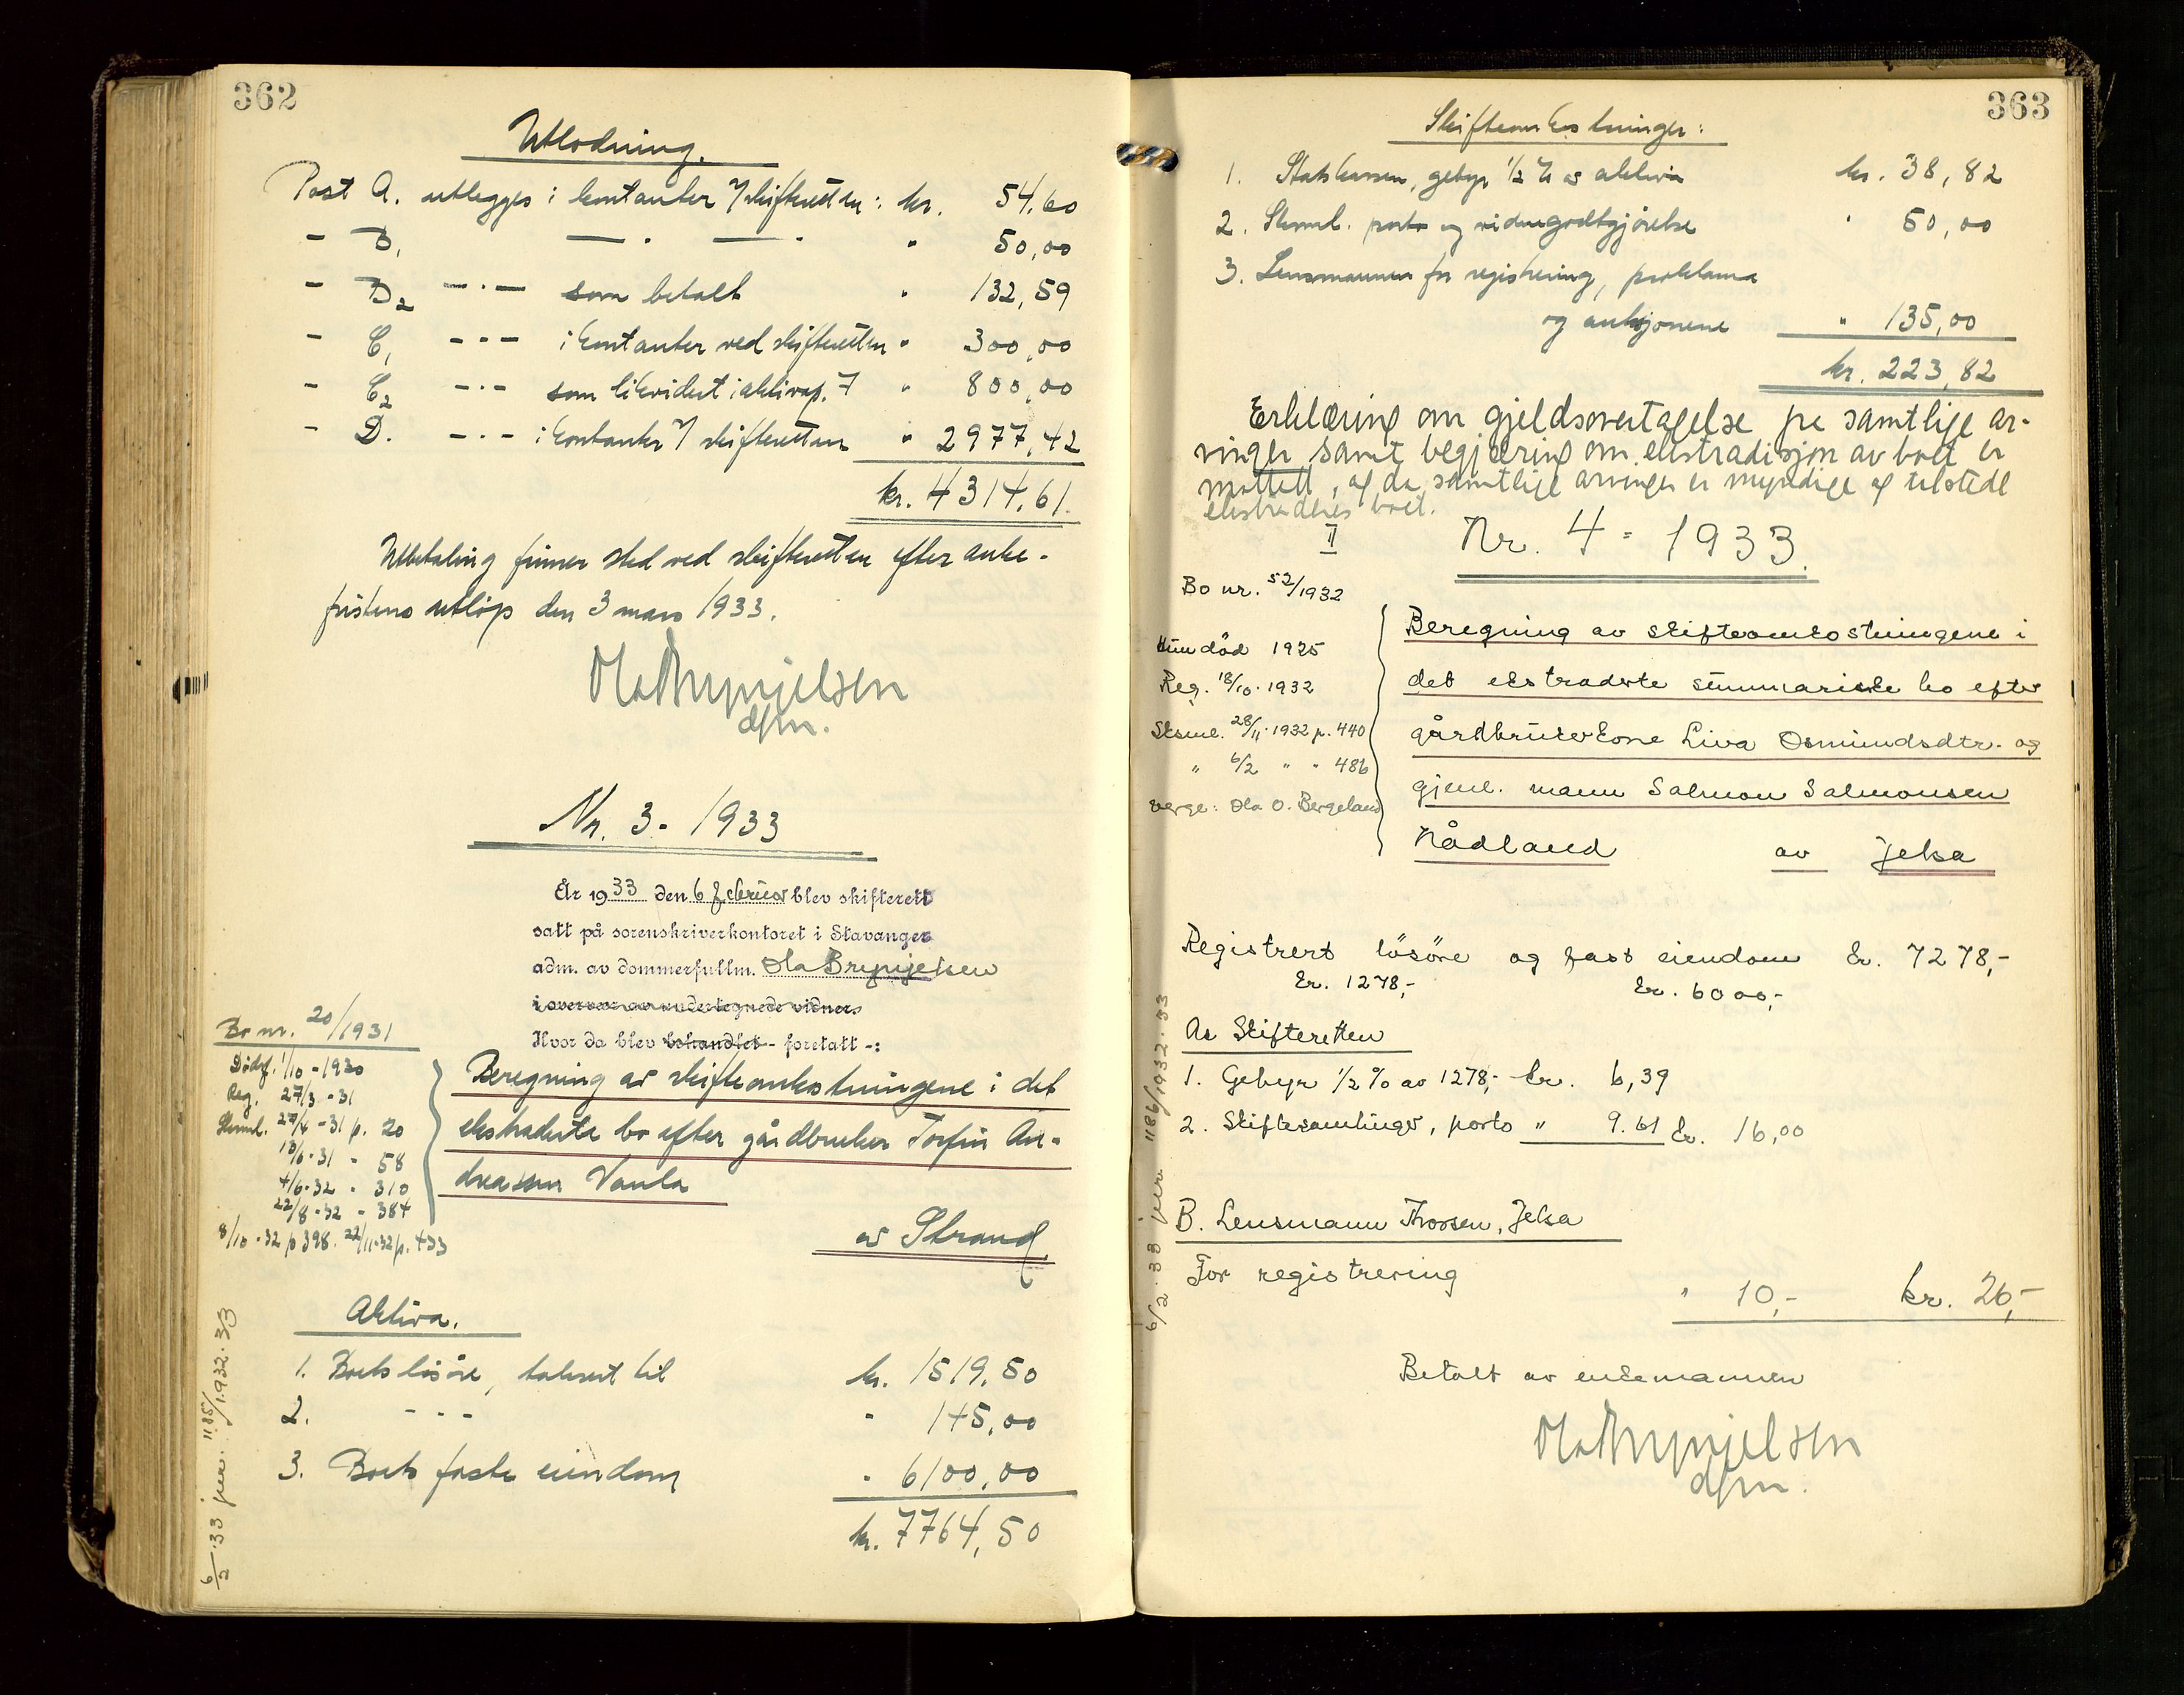 362
Utlodning.
Post A. utlegges i kontanter v/ skifteretten: kr. 54,60
- B, — . — . " 50,00
- B2 — . — som betalt " 132,59
- C, - - - i kontanter ved skifteretten " 300,00
- C2 — . — som likvidert i aktivap. 7 " 800,00
- D. — . — i kontanter v/ skifteretten " 2977,42
kr. 4314,61.
Utbetaling finner sted ved skifteretten efter anke-
fristens utløp den 3 mars 1933.
Ola Brynjelsen
dfm.
Nr. 3 - 1933
År 1933 den 6 februar blev skifterett
satt på sorenskriverkontoret i Stavanger
adm. av dommerfullm. Ola Brynjelsen
i overvær av undertegnede vidner.
Hvor da blev behandlet - foretatt -:
Bo nr. 20/1931
Dødsf. 1/10 - 1930
Reg. 27/3 - 31
Skml. 27/4 - 31 p. 20
13/6 - 31 - 58
4/6 - 32 - 310
22/8 - 32 - 384
8/10 - 32 p 398. 22/11-32 p. 433
Beregning av skifteomkostningene i det
ekstraderte bo efter gårdbruker Torfin An-
dreassen Vaula
av Strand.
Aktiva.
1. Boets løsøre, taksert til kr. 1519,50
2. - - - " 145,00
3. Boets faste eiendom " 6100,00
kr. 7764,50
6/2 33 jnr. 1185/1932-33
363
Skifteomkostninger:
1. Statskassen, gebyr 1/2 % av aktiva kr. 38,82
2. Skuml. porto og vidnegodtgjørelse " 50,00
3. Lensmannen for registrering, proklama
og auksjonene " 135,00
kr. 223,82
Erklæring om gjeldsovertagelse fra samtlige ar-
vinger samt begjæring om ekstradisjon av boet er
mottatt, og da samtlige arvinger er myndige og tilstede
ekstraderes boet.
II
Nr. 4 - 1933.
Bo nr. 52/1932
Hun død 1925
Reg. 18/10 - 1932
Sksml. 28/11 - 1932 p. 440
" 6/2 " " 486
Verge: Ola O. Bergeland
Beregning av skifteomkostningene i
det ekstraderte summariske bo efter
gårdbrukerkone Liva Osmundsdtr. og
gjenl. mann Salmon Salmonsen
Nådland av Jelsa
Registrert løsøre og fast eiendom kr. 7278,-
kr. 1278,- kr. 6000,-
A. Skifteretten
1. Gebyr 1/2 % av 1278,- kr. 6,39
2. Skiftesamlinger, porto " 9.61 kr. 16,00
B. Lensmann Thorsen, Jelsa
For registrering " 10,- kr. 26,-
Betalt av enkemannen
Ola Brynjelsen
dfm.
6/2 - 33 jnr. 1186/1932-33